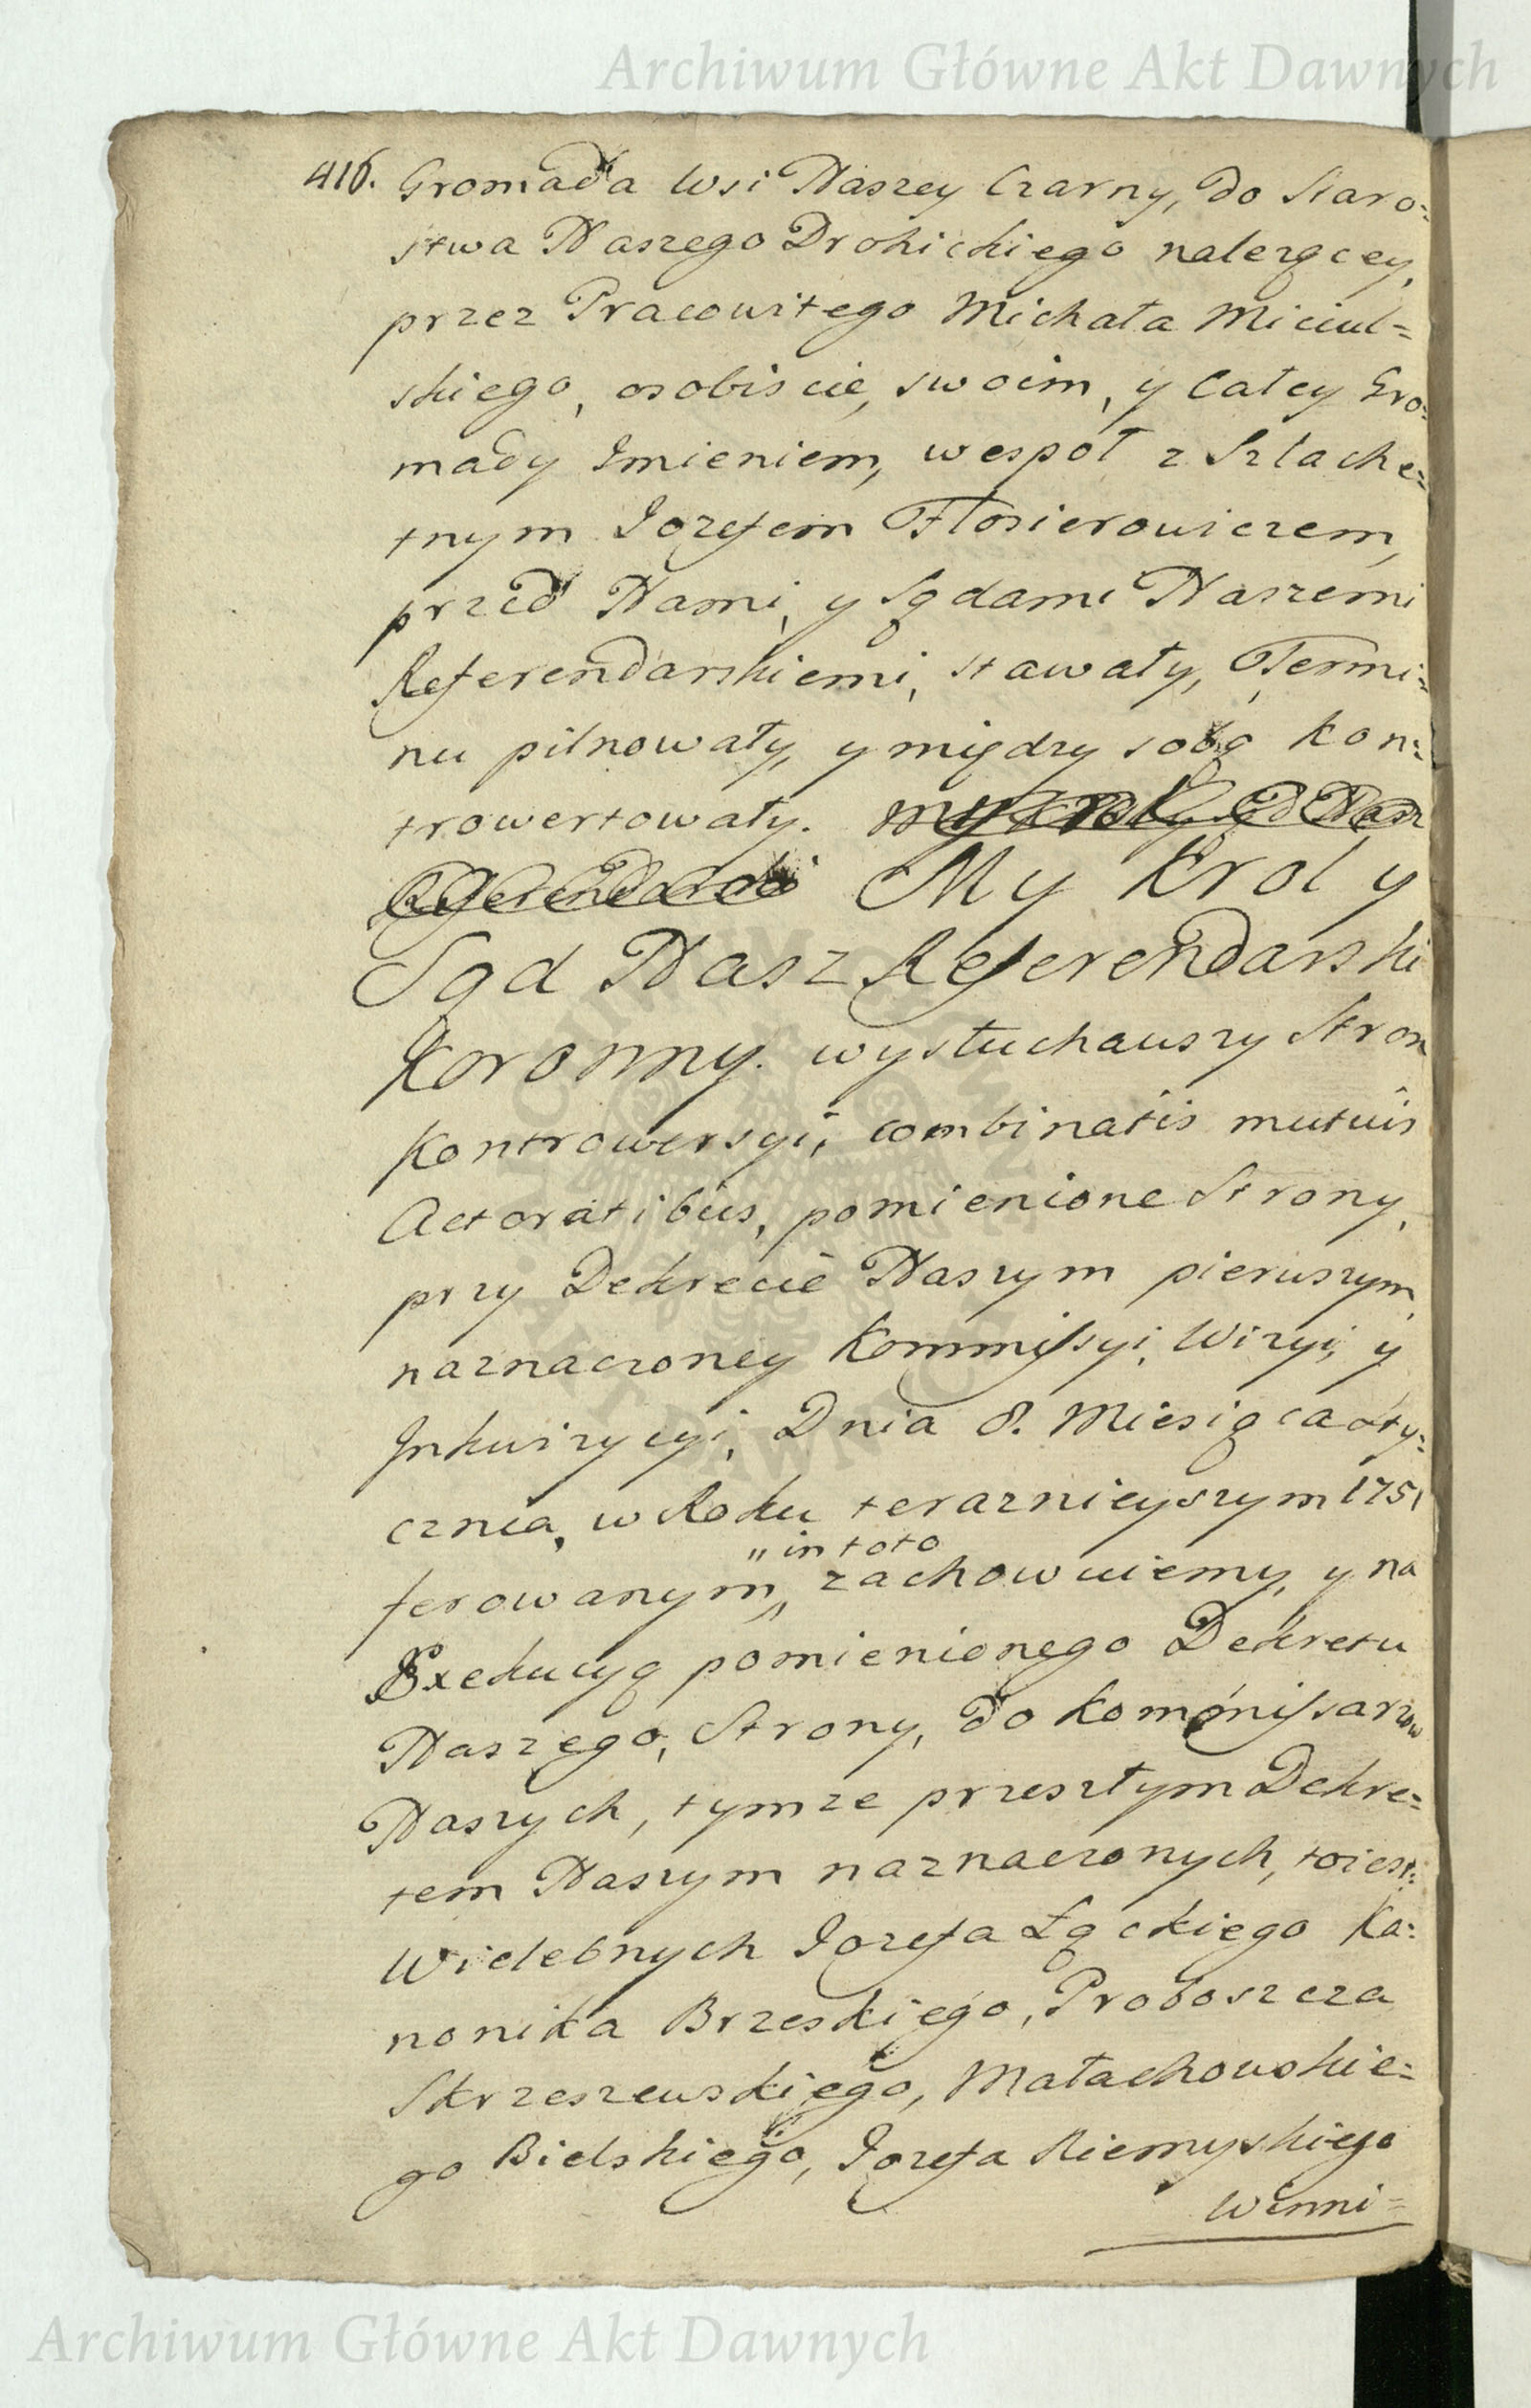 Archiwum Główne Akt Dawnych
416. Gromada Wsi Naszey Czarny, do Staro=
stwa Naszego Drohickiego nalezącey,
przez Pracowitego Michała Miciul=
skiego, osobiscie, swoim, y Całey Gro=
mady Imieniem, wespoł z Szlache=
tnym Jozefem Flosierowiczem,
przed Nami, y Sądami Naszemi
Referendarskiemi, stawały, Termi=
nu pilnowały, y między sobą kon=
trowertowały. My Krol y Sąd Nasz
Referendarski My Krol y
Sąd Nasz Referendarski
Koronny. wysłuchawszy Stron
Kontrowersyi, combinatis mutuis
Actoratibus, pomienione Strony,
przy Dekrecie Naszym pierwszym,
naznaczoney Kommissyi, Wizyi, y
Inkwizycyi, Dnia 8. Miesiąca Sty=
cznia, w Roku teraznieyszym 1751
"in toto
ferowanym, zachowuiemy, y na
Exekucyą pomienionego Dekretu
Naszego, Strony, do Kommissarzow
Naszych, tymze przeszłym Dekre=
tem Naszym naznaczonych, toiest:
Wielebnych Jozefa Łąckiego Ka=
nonika Brzeskiego, Proboszcza
Skrzeszewskiego, Małachowskie=
go Bielskiego, Jozefa Niemyskiego
Winni=
Archiwum Główne Akt Dawnych